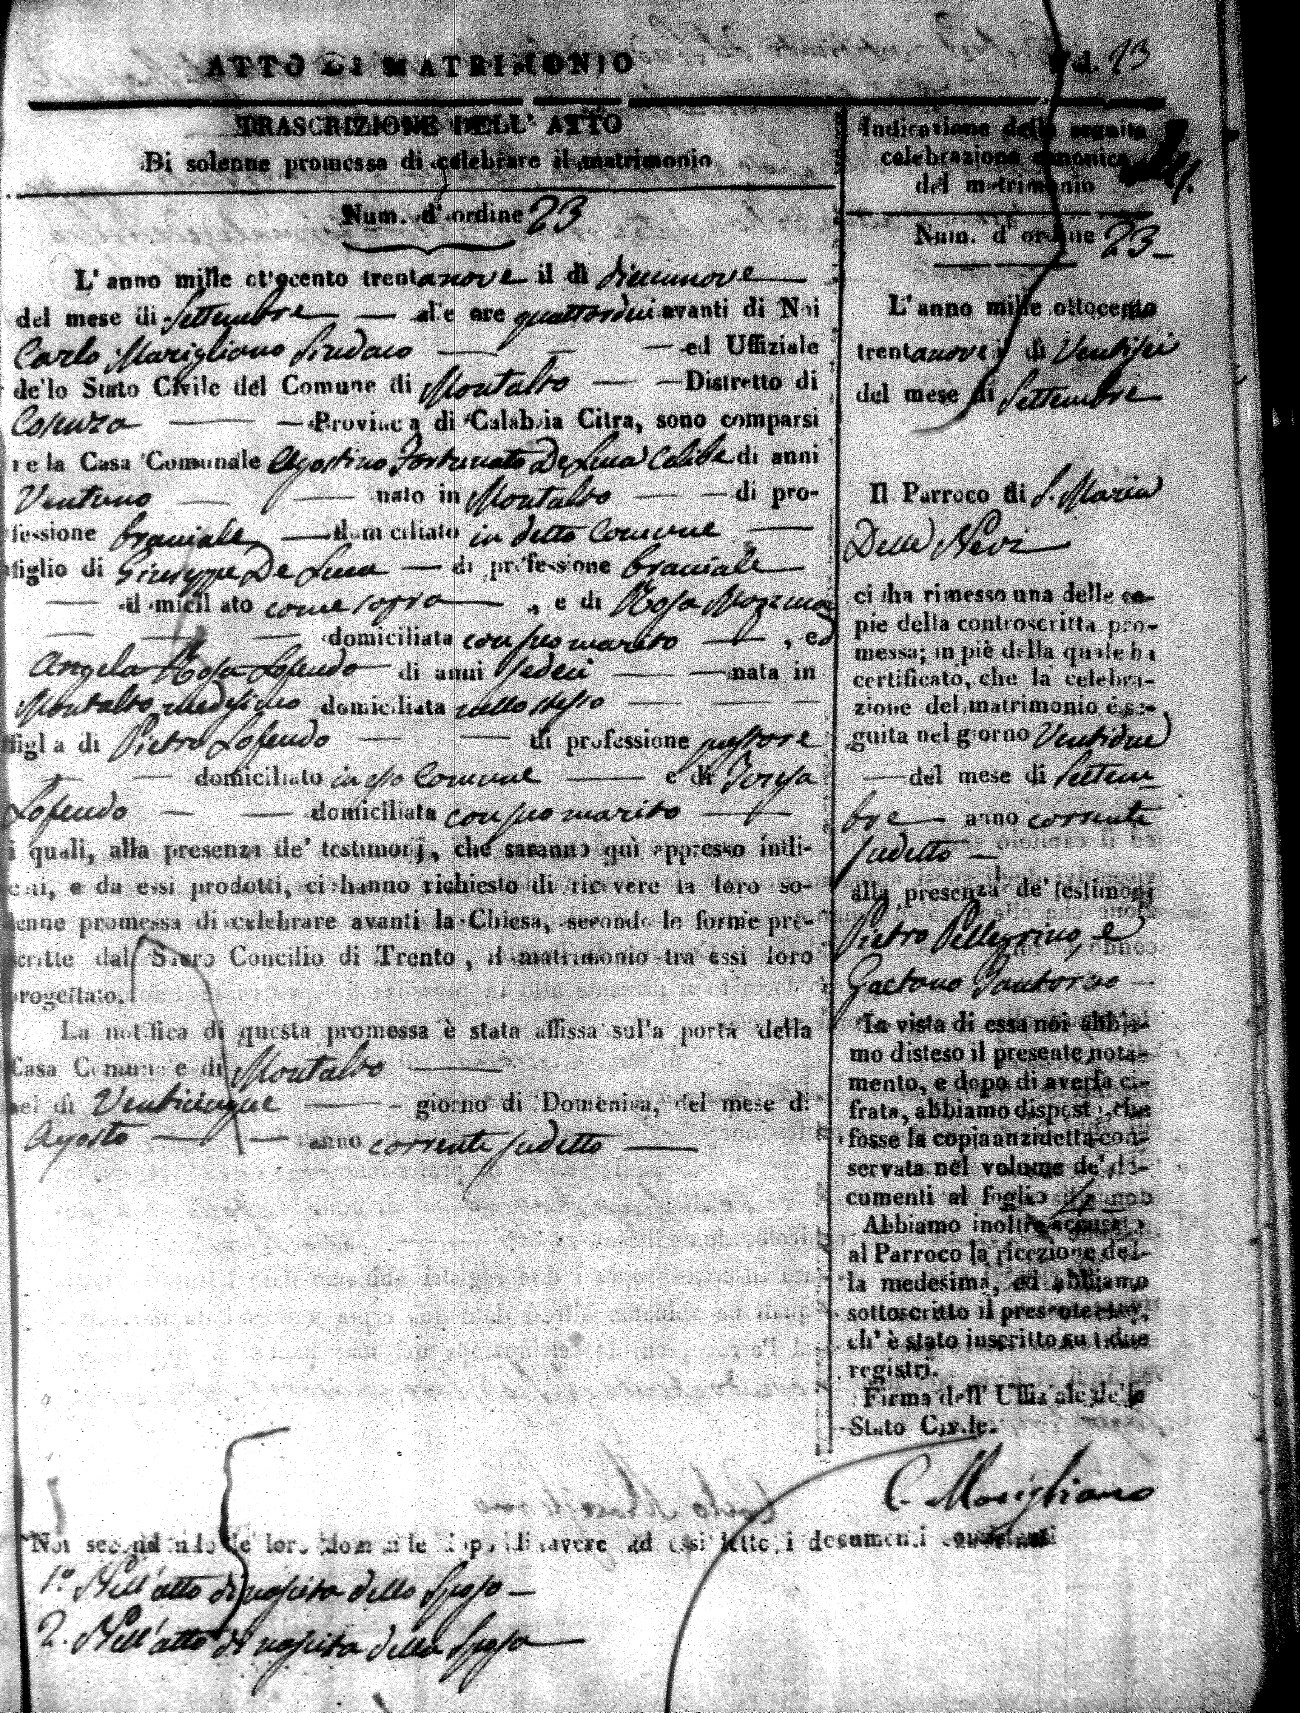 ATTO DI MATRIMONIO
23
TRASCRIZIONE DELL' ATTO
Di solenne promessa di celebrare il matrimonio
Num. d' ordine 23
L' anno mille ottocento trentanove il di diecinnove
del mese di Settembre alle ore quattordici avanti di Noi
Carlo Marigliano Sindaco ed Uffiziale
dello Stato Civile del Comune di Montalto Distretto di
Cosenza Provincia di Calabria Citra, sono comparsi
nella Casa Comunale Agostino Fortunato De Luca Celibe di anni
Ventuno nato in Montalto di pro-
fessione bracciale domiciliato in detto Comune
figlio di Giuseppe De Luca di professione bracciale
domiciliato come sopra , e di Rosa
domiciliata con suo marito , ed
Angela Rosa Lofendo di anni sedeci nata in
Montalto medesimo domiciliata nello stesso
figlia di Pietro Lofendo di professione pastore
domiciliato in esso Comune e di Teresa
Lofendo domiciliata con suo marito
i quali, alla presenza de' testimonj, che saranno qui appresso indi-
cati, e da essi prodotti, ci hanno richiesto di ricevere la loro so-
lenne promessa di celebrare avanti la Chiesa, secondo le forme pre-
scritte dal Sacro Concilio di Trento, il matrimonio tra essi loro
progettato.
La notifica di questa promessa è stata affissa sulla porta della
Casa Comunale di Montalto
nel di Venticinque giorno di Domenica, del mese di
Agosto anno corrente sudetto
Noi secondando le loro domande dopo di avere ad essi letto i documenti
1.º Nell'atto di nascita dello Sposo
2. Nell'atto di nascita della Sposa
Indicazione della seguita
celebrazione canonica
del matrimonio
Num. d' ordine 23
L' anno mille ottocento
trentanove il di Ventisei
del mese di Settembre
Il Parroco di S. Maria
Della Nevi
ci ha rimesso una delle co-
pie della controscritta pro-
messa; in piè della quale ha
certificato, che la celebra-
zione del matrimonio è se-
guita nel giorno Ventidue
del mese di Settem
bre anno corrente
sudetto
alla presenza de' testimonj
Pietro Pellegrino, e
Gaetano Santoro
In vista di essa noi abbia-
mo disteso il presente nota-
mento, e dopo di averla ci-
frata, abbiamo disposto, che
fosse la copia anzidetta con-
servata nel volume de' do-
cumenti al foglio
Abbiamo inoltre accusato
al Parroco la ricezione del-
la medesima, ed abbiamo
sottoscritto il presente atto,
ch' è stato inscritto su i due
registri.
Firma dell' Uffiziale dello
Stato Civile.
C. Marigliano